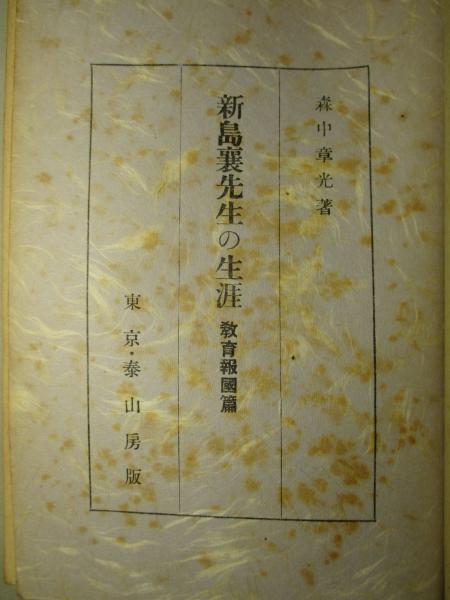 森中章光著
新島襄先生の生涯 敎育報國篇
東京・泰山房版